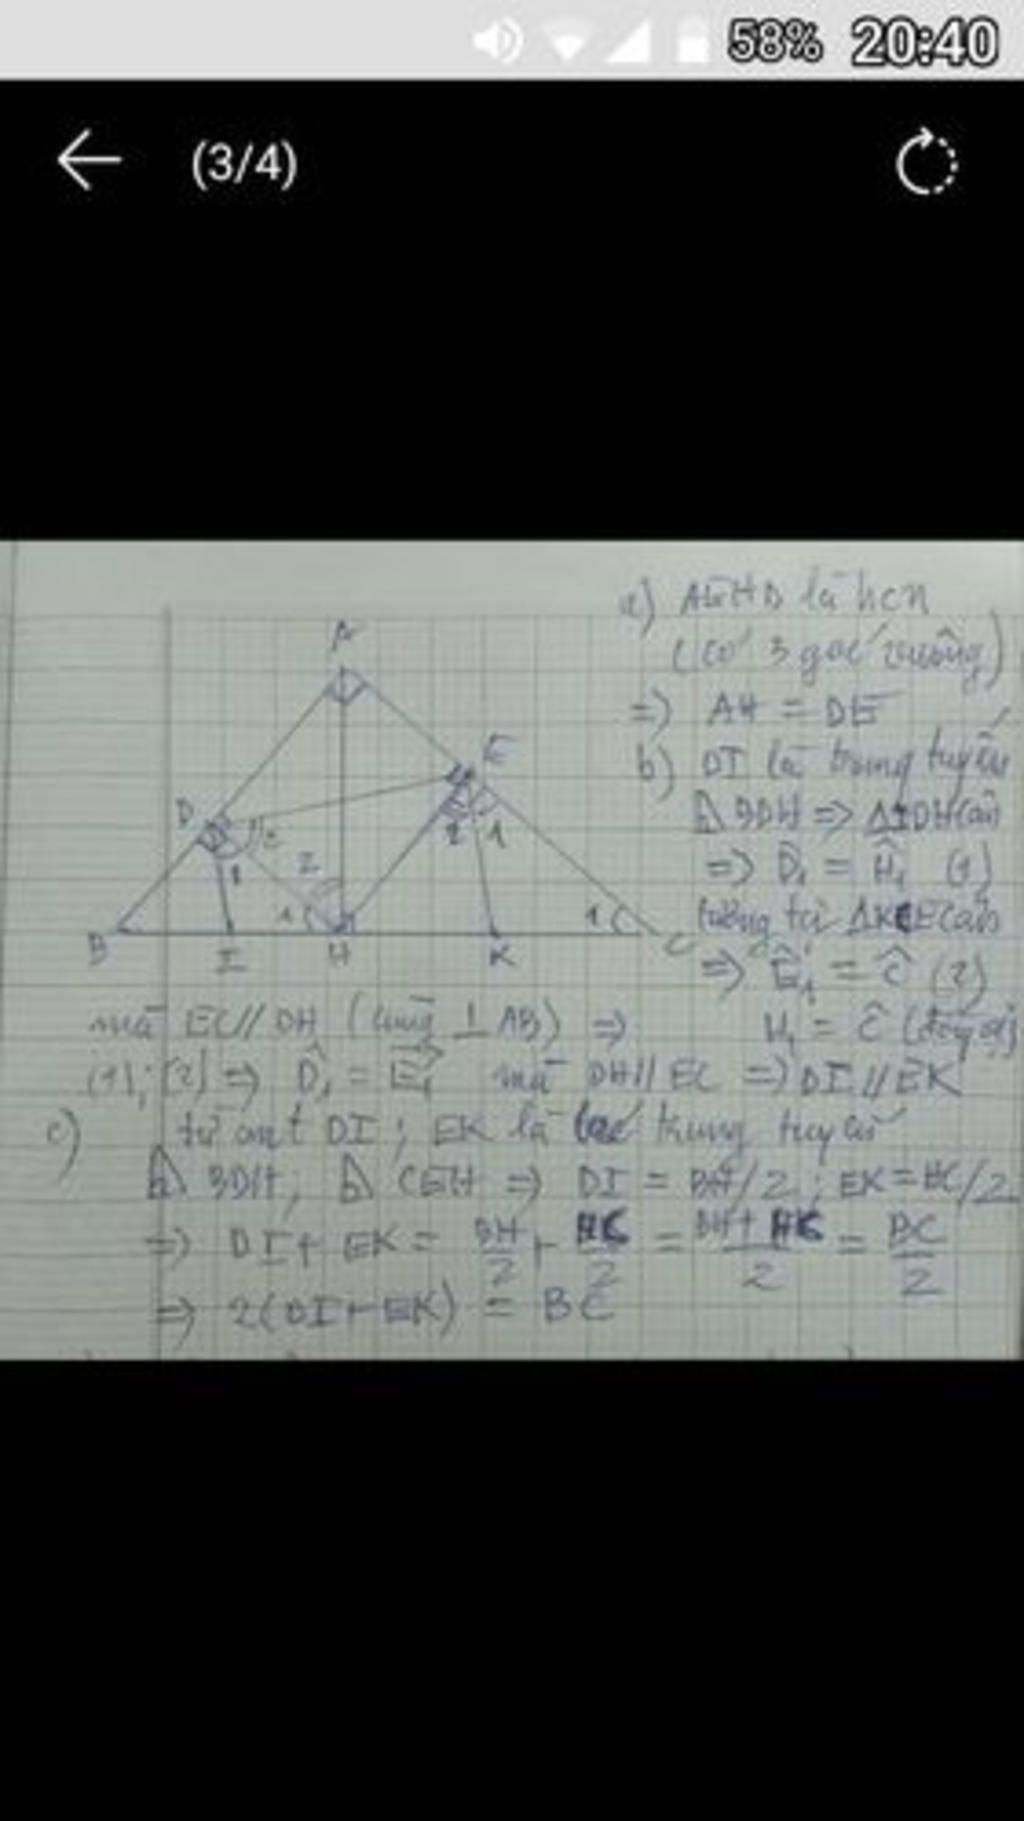 58% 20:40
(3/4)
a) AEHD là hcn
(có 3 góc vuông)
=> AH = DE
b) DI là trung tuyến
BDH => ΔIDH cân
=> D̂₁ = Ĥ₁ (1)
tương tự ΔKCE cân
=> Ê₁ = Ĉ (2)
mà EC // DH (cùng ⊥ AB) => H₁ = Ĉ (đồng vị)
(1); (2) => D̂₁ = Ê₁ mà DH // EC => DI // EK
c) từ cmt DI ; EK là các trung tuyến
BDH; CEH => DI = BH/2 ; EK = HC/2
=> DI + EK = BH/2 + HC/2 = BH + HC/2 = BC/2
=> 2(DI + EK) = BC
A
E
D
2
1
2
2
1
1
1
B
I
H
K
C